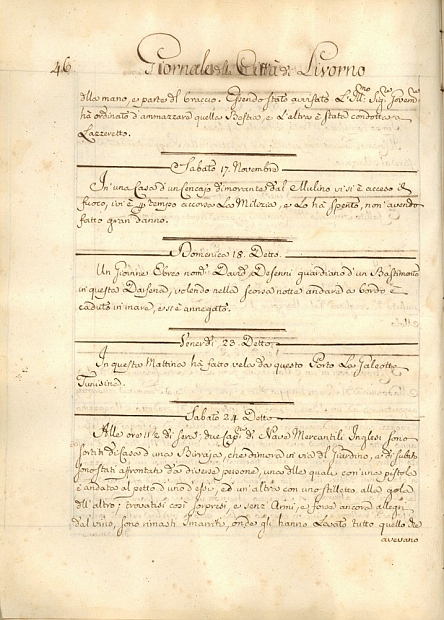 46 Giornale di Città di Livorno
della mano, e parte del braccio. Essendo stato avvisato L'Ill: Sig: Govern:
hà ordinato d'ammazzare quella Bestia, e l'altra è stata condotta a
Lazzeretto.
Sabato 17. Novembre
In una Casa d'un Cencajo dimorante dal Mulino vi si è acceso il
fuoco, ivi è tempo accorsa La Milizia, e Lo hà spento, non avendo
fatto gran danno.
Domenica 18. Detto.
Un Giovine Ebreo nom: David Desenni guardiano d'un Bastimento
in questa Darsena, volendo nella scorsa notte andare a bordo è
caduto in mare, e si è annegato.
Venerdì 23. Detto.
In questa Mattina hà fatto vela da questo Porto La Galeotta
Tunisina.
Sabato 24. Detto
Alle ore 11½ di sera, due Cap: di Nave Mercantili Inglesi sono
sortiti di Casa d'una che dimora in via del Giardino, e di subito
sono stati affrontati da diverse persone, una delle quali con una pistola
è andata al petto d'uno d'essi, ed un'altra con uno stilletto alla gola
dell'altro; trovatisi così sorpresi, e senz'Armi, e forse ancora allegri
dal vino, sono rimasti smarriti, onde gli hanno Levato tutto quello che
avevano